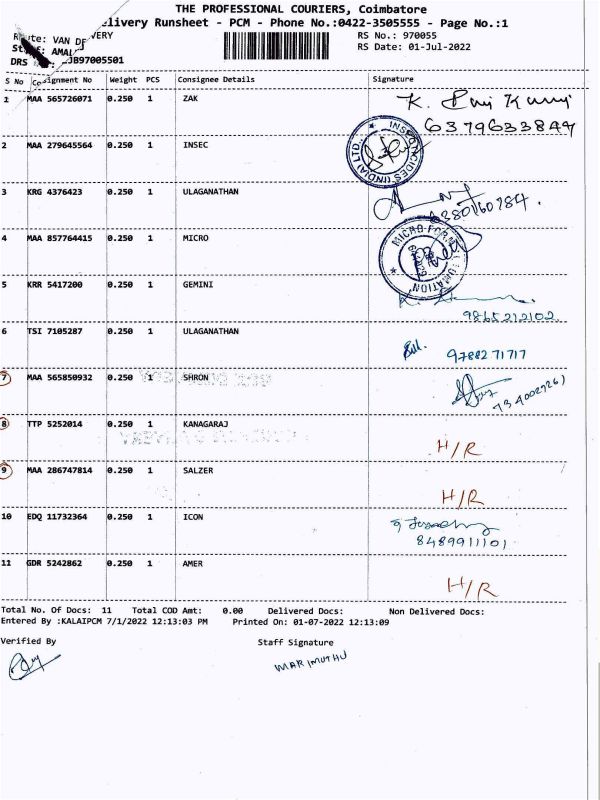 THE PROFESSIONAL COURIERS, Coimbatore
elivery Runsheet - PCM - Phone No.:0422-3505555 - Page No.:1
te: VAN DE VERY
RS No.: 970055
St : AMAL
RS Date: 01-Jul-2022
DRS JB97005501
S No Co signment No Weight PCS Consignee Details Signature
1 MAA 565726071 0.250 1 ZAK
6379633844
2 MAA 279645564 0.250 1 INSEC
INSECTICIDES (INDIA) LTD.
3 KRG 4376423 0.250 1 ULAGANATHAN
6380160784.
4 MAA 857764415 0.250 1 MICRO
MICRO FOR
5 KRR 5417200 0.250 1 GEMINI
9865212102
6 TSI 7105287 0.250 1 ULAGANATHAN
9788271717
7 MAA 565850932 0.250 1 SHRON
8 TTP 5252014 0.250 1 KANAGARAJ
H/R
9 MAA 286747814 0.250 1 SALZER
H/R
10 EDQ 11732364 0.250 1 ICON
8489911101
11 GDR 5242862 0.250 1 AMER
H/R
Total No. Of Docs: 11 Total COD Amt: 0.00 Delivered Docs: Non Delivered Docs:
Entered By :KALAIPCM 7/1/2022 12:13:03 PM Printed On: 01-07-2022 12:13:09
Verified By Staff Signature
MARIMUTHU